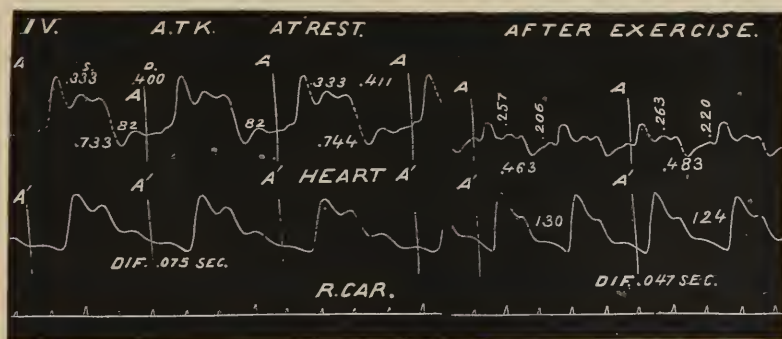 IV. A.T.K. AT REST. AFTER EXERCISE.
A S. D. A A A A
.333 .400 .333 .411 .257 .206 .263 .220
82 82
.733 .744 .463 .483
A' A' A' HEART A' A' A'
130 124
DIF. .075 SEC. DIF. .047 SEC.
R. CAR.